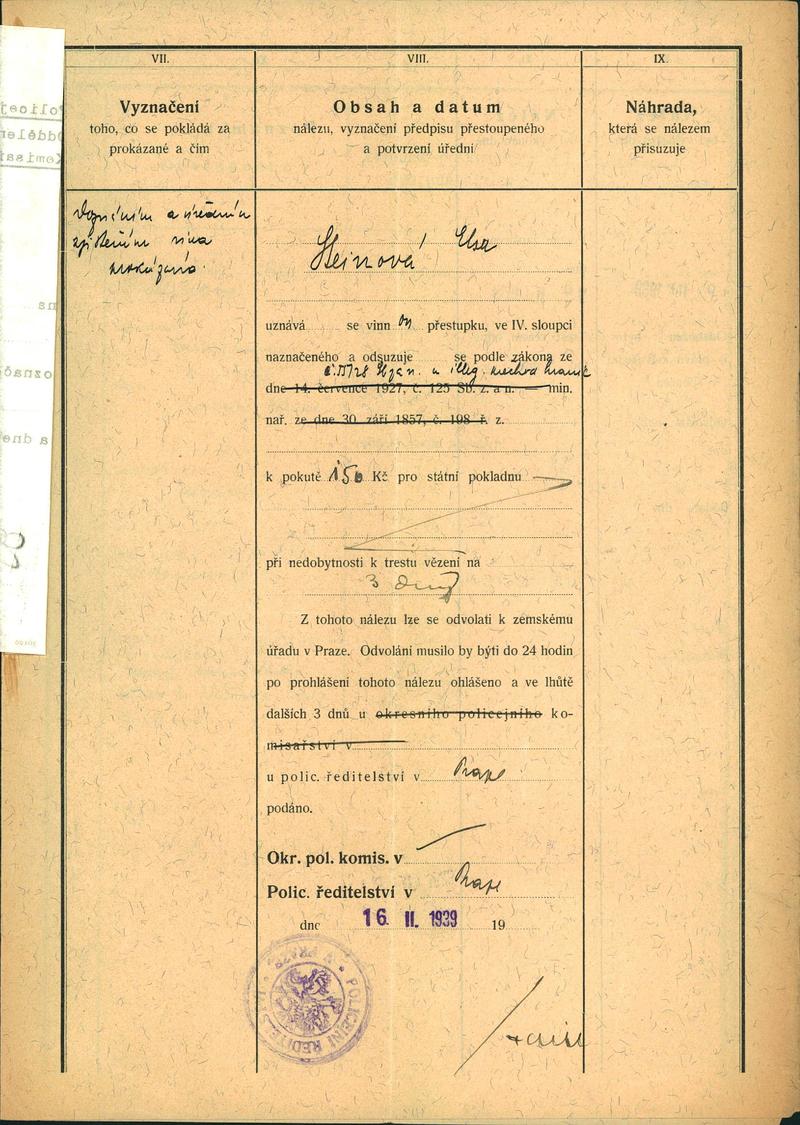 VII.
Vyznačení
toho, co se pokládá za
prokázané a čím
a úředním
zjištěním vina
prokázána.
VIII.
Obsah a datum
nálezu, vyznačení předpisu přestoupeného
a potvrzení úřední
Steinová Elsa
uznává se vinn ou přestupku, ve IV. sloupci
naznačeného a odsuzuje se podle zákona ze
dne 14. července 1927, č. 125 Sb. z. a n. — min.
nař. ze dne 30. září 1857, č. 198 ř. z.
k pokutě 150 Kč pro státní pokladnu
při nedobytnosti k trestu vězení na
3 dny
Z tohoto nálezu lze se odvolati k zemskému
úřadu v Praze. Odvolání musilo by býti do 24 hodin
po prohlášení tohoto nálezu ohlášeno a ve lhůtě
dalších 3 dnů u okresního policejního ko-
misařství v
u polic. ředitelství v Praze
podáno.
Okr. pol. komis. v
Polic. ředitelství v Praze
dne 16. II. 1939 19
POLICEJNÍ ŘEDITELSTVÍ V PRAZE
IX.
Náhrada,
která se nálezem
přisuzuje